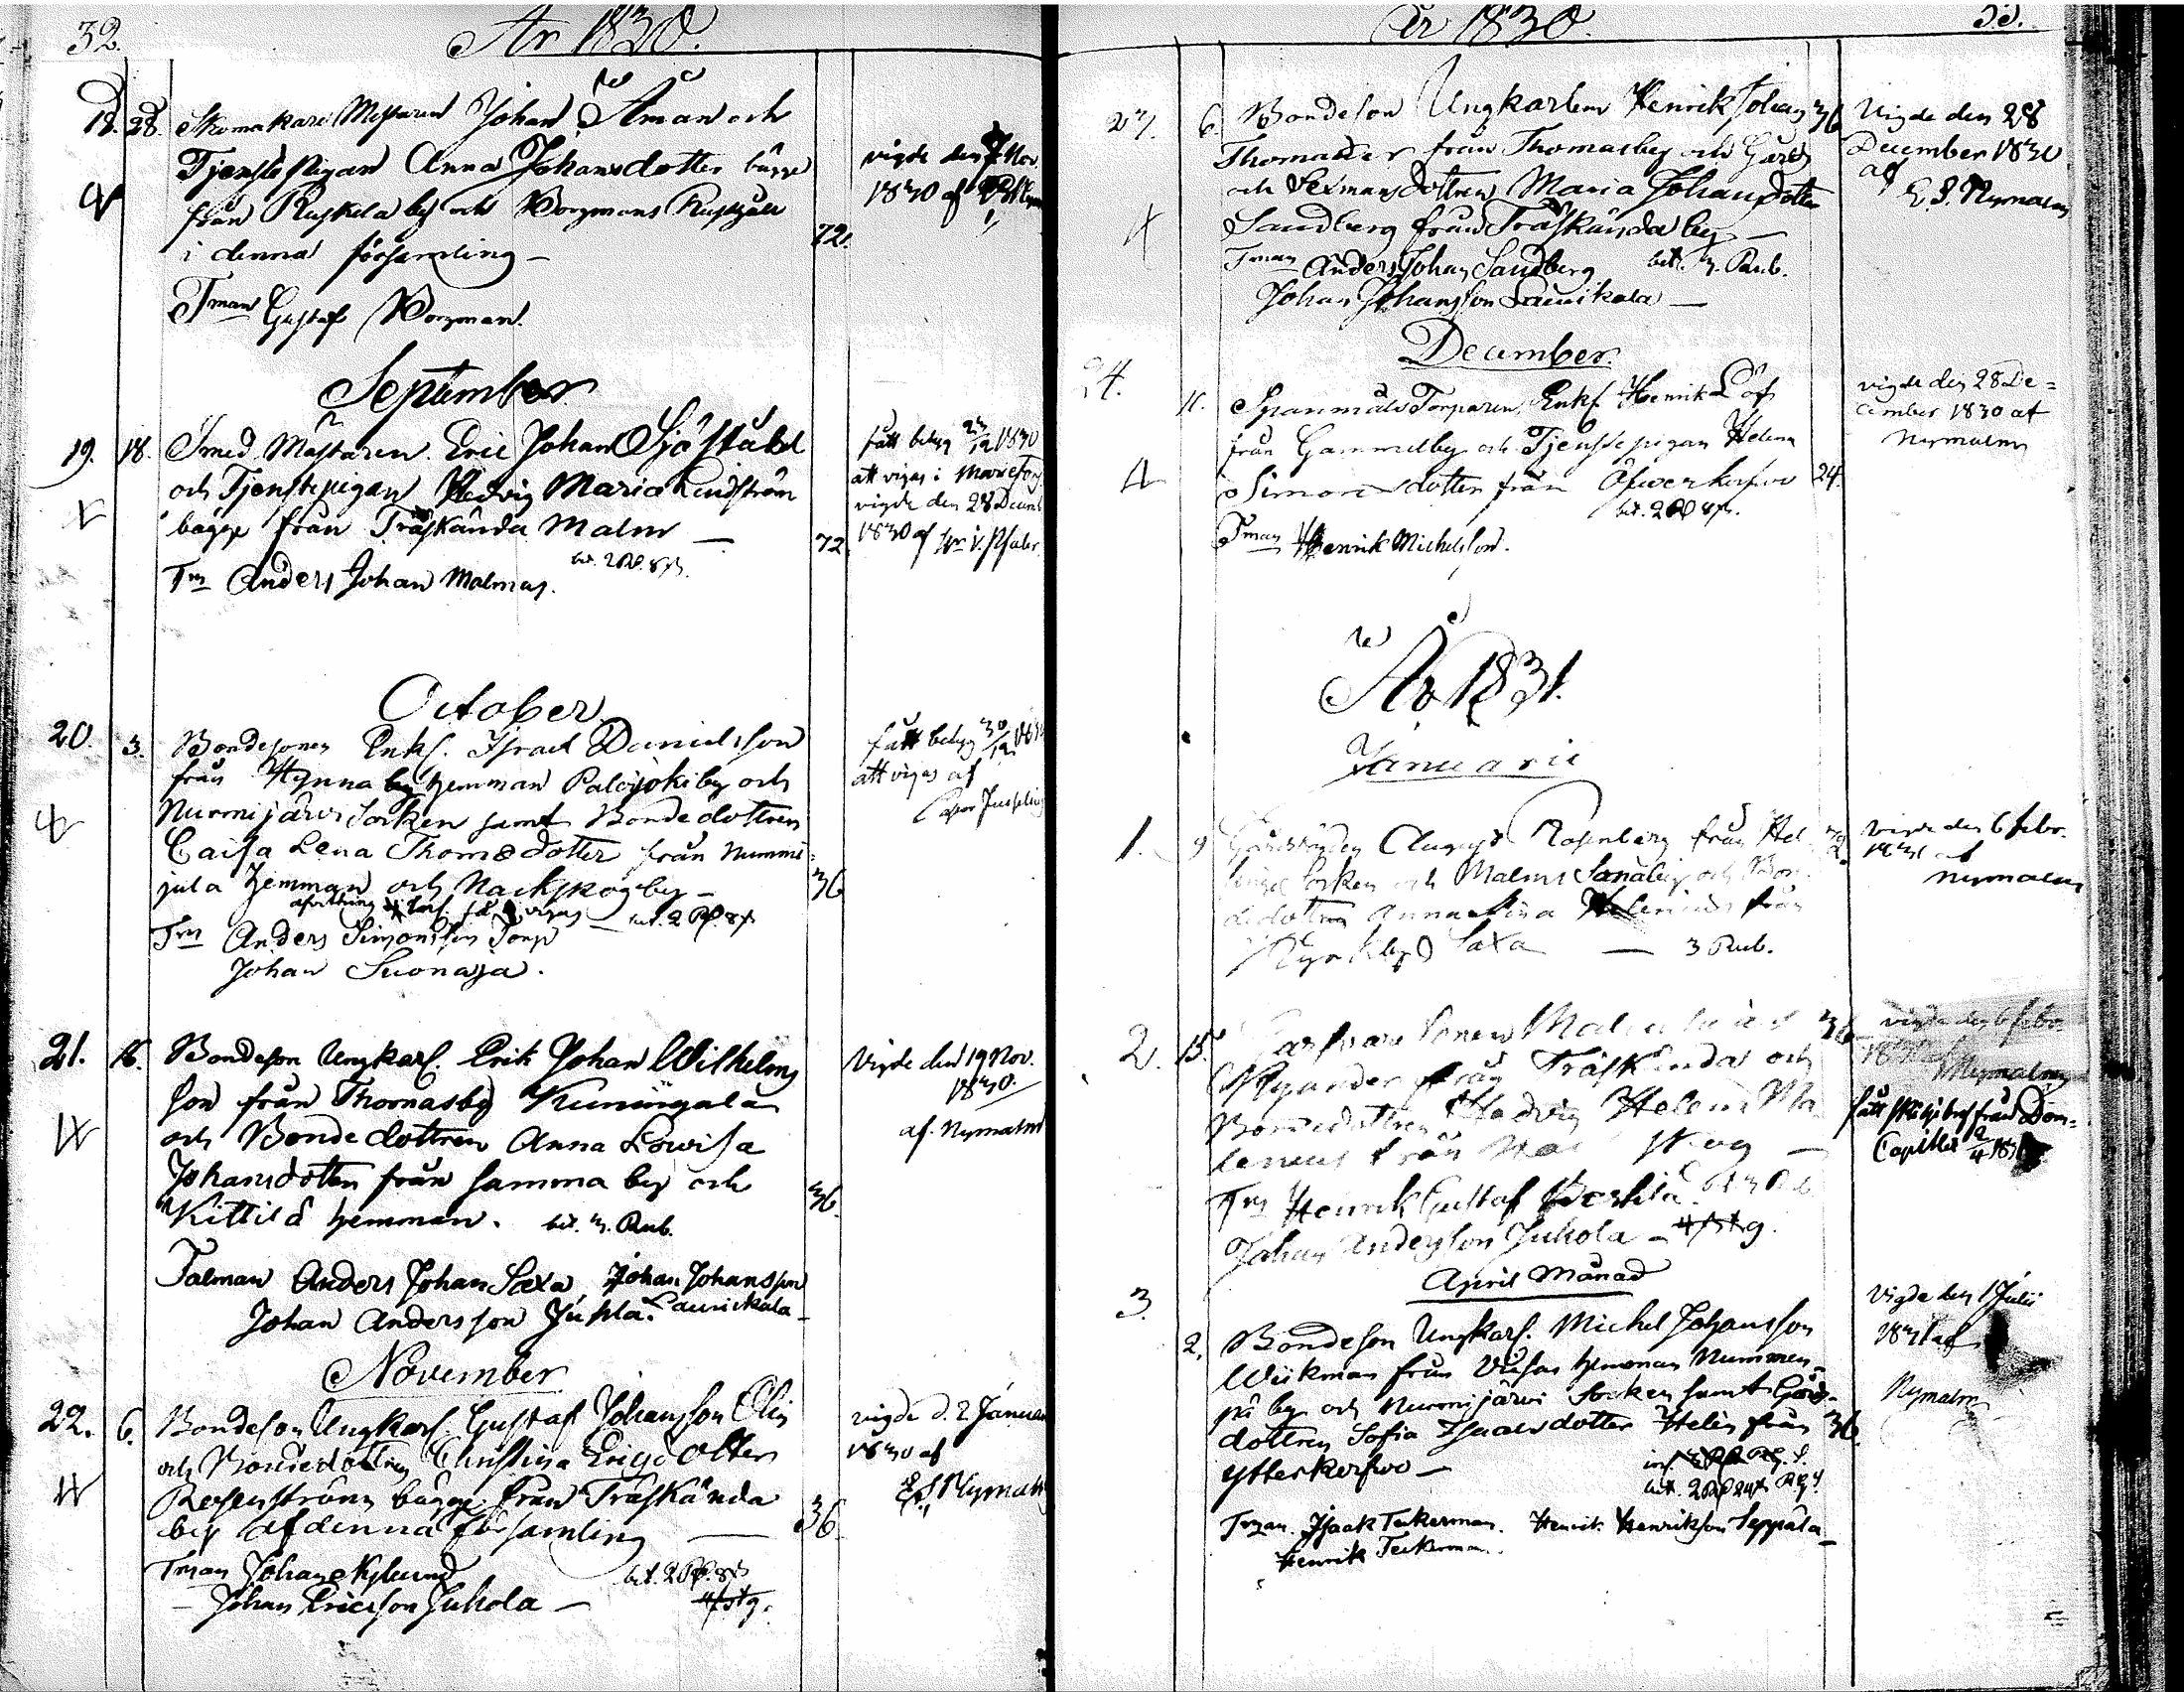 32.
År 1830.
18. 28. Skomakare Mästaren Johan Åman och
Tjenstepigan Anna Johansdotter bägge
från Ruskela by och Borgmans
i denna församling —
72.
Tman Gustaf Borgman.
vigde den 7 Nov.
1830 af
September
19. 18. Smed Mästaren Eric Johan Sjöstedt
och Tjenstepigan Hedvig Maria Lindström
bägge från Träskända Malm —
72.
bet. 2 Rd. 8 sk.
Tm Anders Johan Malmas.
fått betyg 23/12 1830
att vigas i Mariefors
vigde den 28 Decemb
1830 af
October
20. 3. Bondesonen Enkl. Israel Danielsson
från Hynna by hemman Palojoki by och
Nurmijärvi Socken samt Bondedottren
Caisa Lena Thomedotter från Nummi-
jula hemman och Nackskog by —
36
bet. 2 Rd. 8 sk
Tm Anders Simonsson Torp
Johan Suonaja.
fått betyg 30/12 1830
att vigas af
21. 16. Bondeson Ungkarl. Erik Johan Wilhelms
son från Thomasby Kuningala
och Bondedottren Anna Lowisa
Johansdotter från samma by och
Kittilä hemman. bet. 3. Rub.
36.
Talman Anders Johan Saxa, Johan Johansson
Johan Andersson Jukla. Launikala —
Vigde den 19 Nov.
1830.
af. Nymalm
November
22. 6. Bondeson Ungkarl. Gustaf Johansson Olin
och Bondedottren Christina Ericsdotter
Rosenström bägge från Träskända
by af denna församling —
36.
Tman Johan Nylund
bet. 2 Rd. 8 sk
— Johan Ericsson Juhola —
vigde d. 2 Januari
1830 af
Nymalm
År 1830.
33.
27. 6. Bondeson Ungkarlen Henrik Johan 36
Thomander från Thomasby och Gård
och Sexmansdottren Maria Johansdotter
Sandberg från Träskända by —
Tman Anders Johan Sandberg bet. 3. Rub.
Johan Johansson Launikala —
Vigde den 28
December 1830
af
E. S. Nymalm
December.
24. 11. Spanmåls Torparen, Enkl. Henrik Löf
från Gammelby och Tjenstepigan Helena
Simonsdotter från Öfwerkerfwo 24.
bet. 2 Rd 8 sk.
Tman Henrik Michelsson.
vigde den 28 De=
cember 1830 af
Nymalm
År 1831.
Januarii
1. 9 August Rosenberg från Hel-
singe Socken och Malms Sanaby och Bon-
dedottren Anna Stina Helenius från
Kyrkby Saxa — 3 Rub.
Vigde den 6 febr.
1831 af
Nymalm
2. 15. Garfvare Sonen
Nyander från Träskända och
Bondedottren Hedvig Helena
Tm Henrik Gustaf
Johan Andersson Juhola —
36
vigde den 6 febr.
1831 af
Nymalm
från Dom-
Capitlet
April Månad
3. 2. Bondeson Ungkarl. Michel Johansson
Wikman från hemman Nummen-
pä by och Nurmijärvi Socken samt Gårds-
dottren Sofia Isaacsdotter Helin från 36.
Ytterkerfwo —
Tman. Isaak Tackerman. Henrik Henrikson Seppälä —
Henrik Tackerman.
Vigde den 1 Julii
1831 af
Nymalm